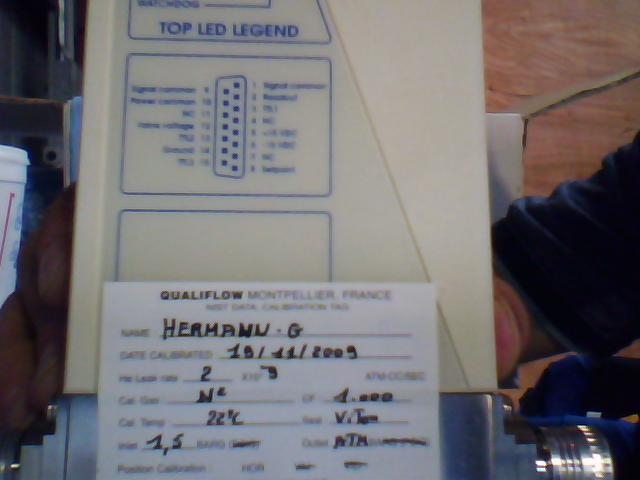 WATCHDOG
TOP LED LEGEND
Signal common 9 1 Signal common
Power common 10 2 Readout
NC 11 3 TTL1
Valve voltage 12 4 NC
TTL2 13 5 +15 VDC
Ground 14 6 -15 VDC
TTL3 15 7 NC
8 Setpoint
QUALIFLOW MONTPELLIER, FRANCE
NIST DATA, CALIBRATION TAG
NAME HERMANN-G
DATE CALIBRATED 19/11/2009
He Leak rate 2 X10-9 ATM-CC/SEC
Cal. Gas N2 CF 1.000
Cal. Temp 22°C Seal V.Ton
Inlet 1,5 BARG Outlet ATM
Position Calibration: HOR